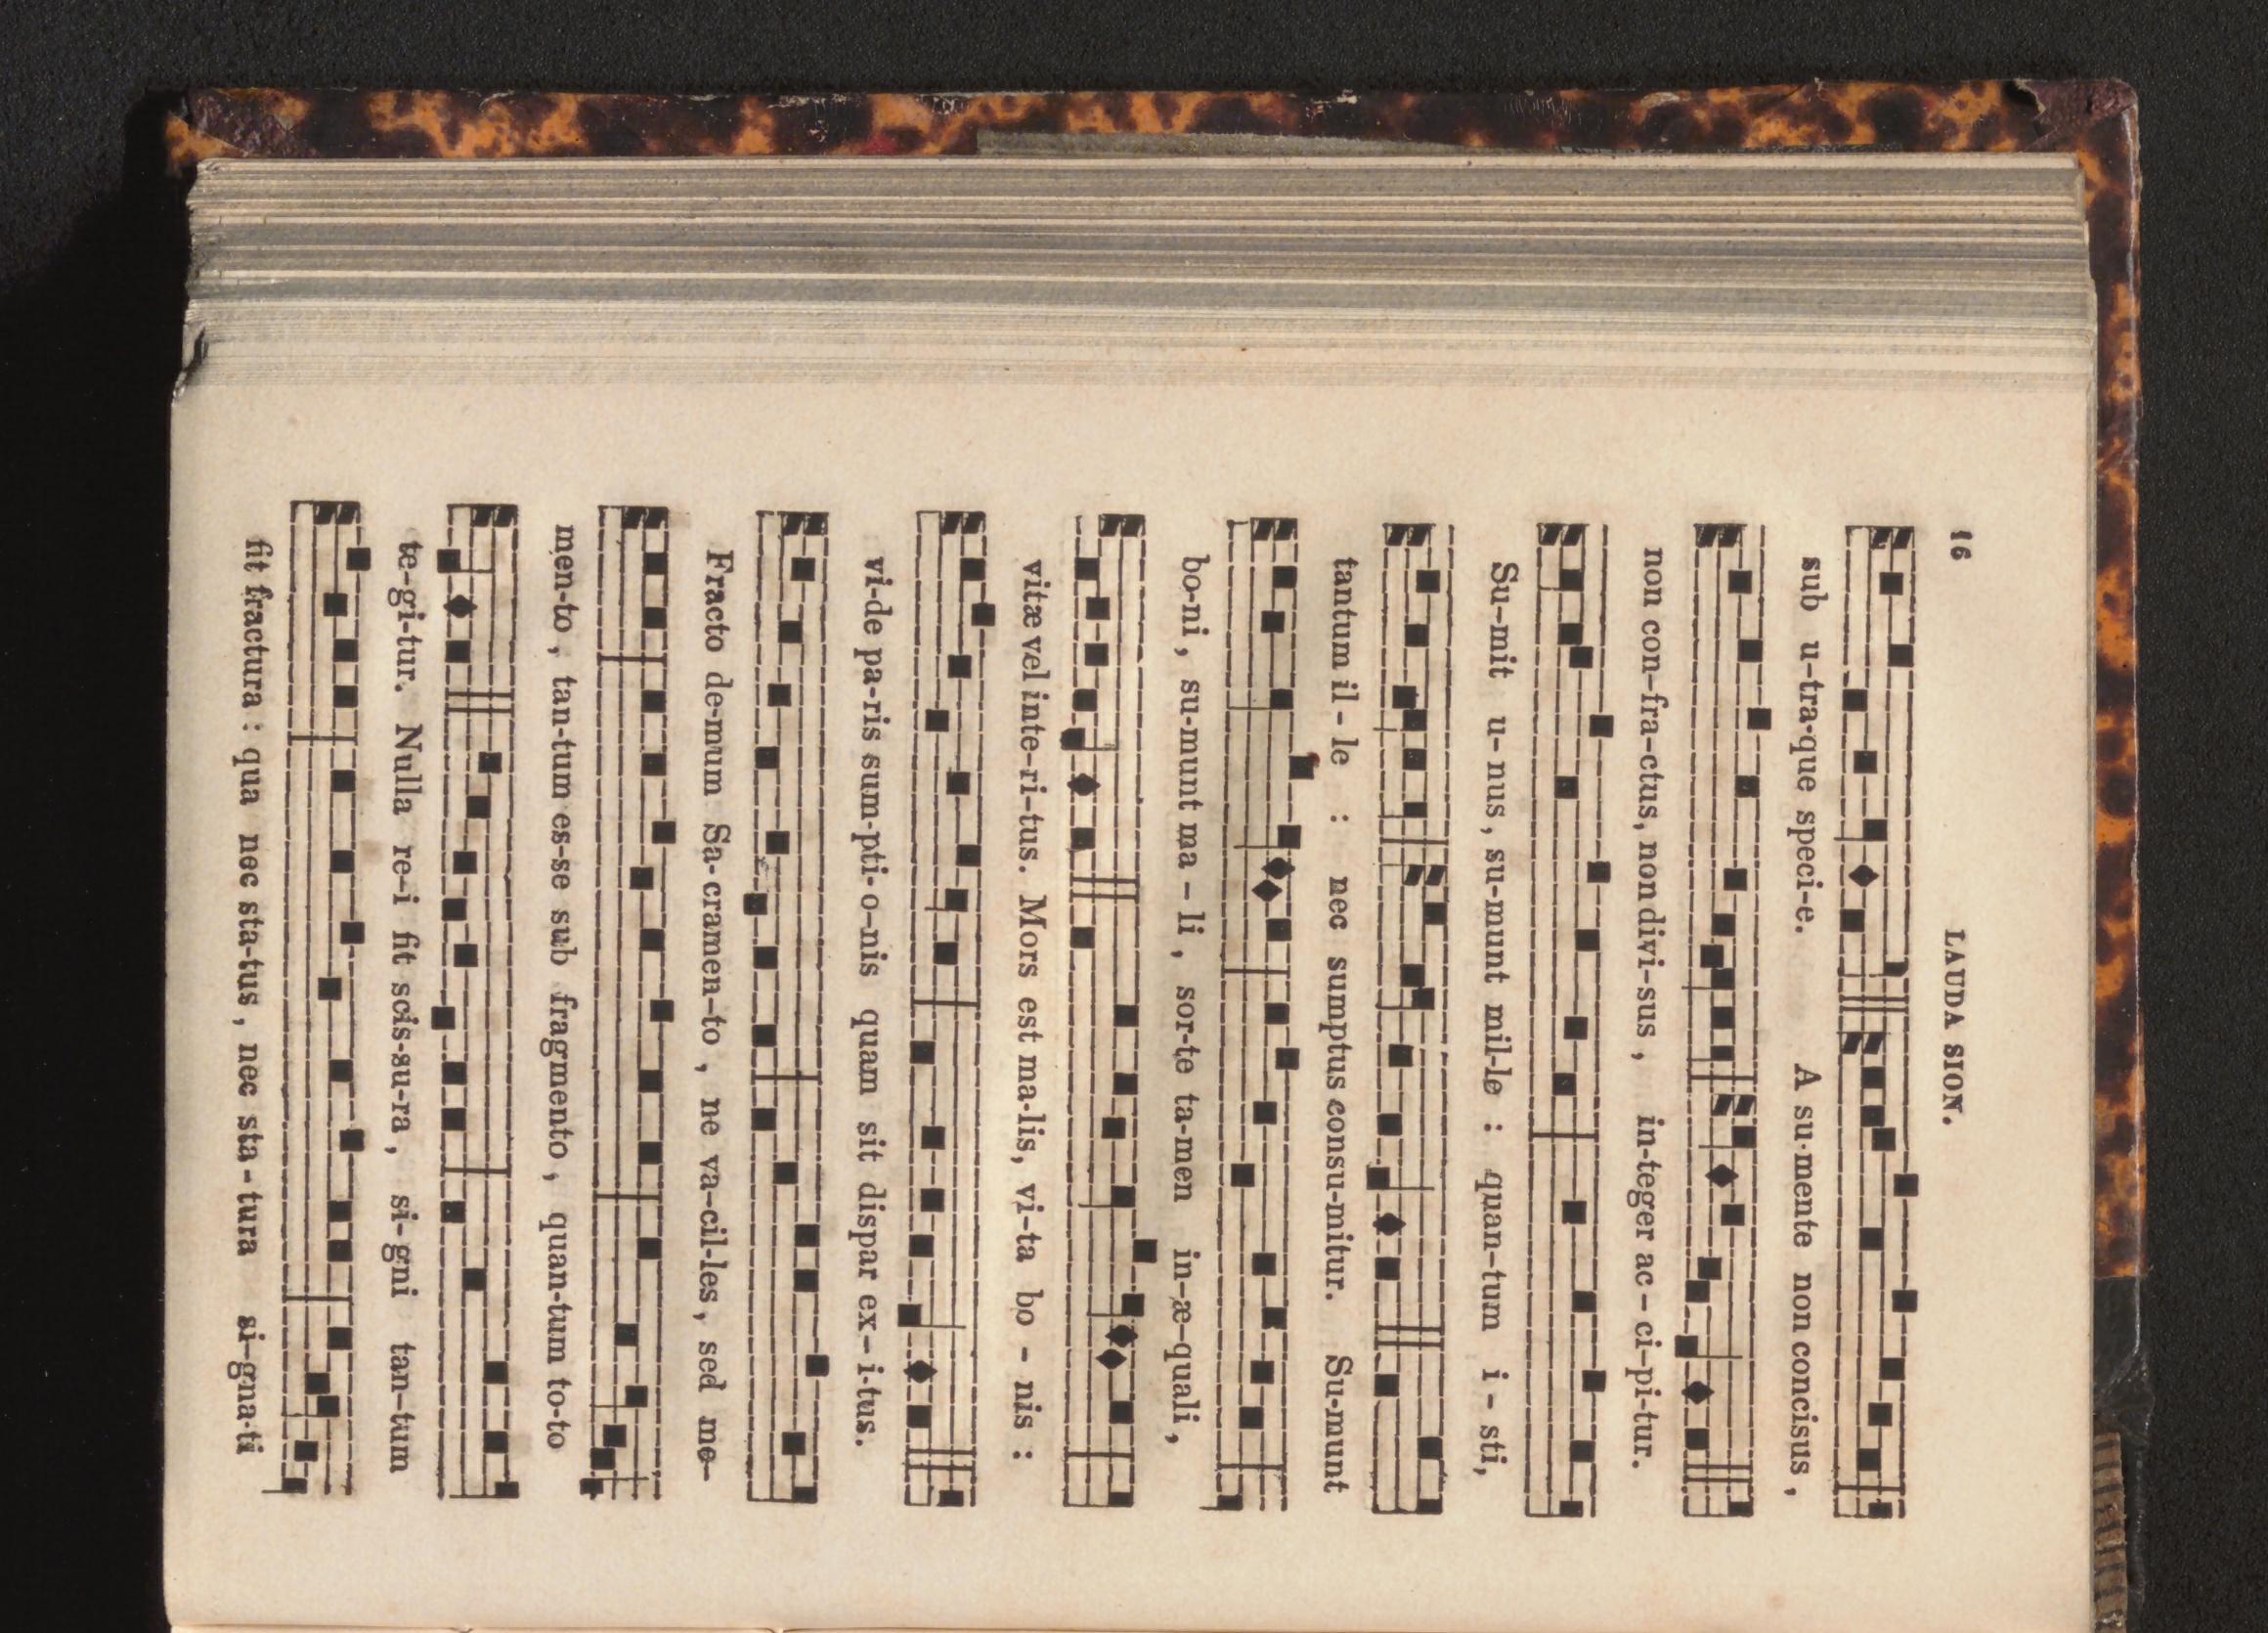 16 LAUDA SION.
sub u-tra-que speci-e. A su-mente non concisus,
non con-fra-ctus, non divi-sus, in-teger ac-ci-pi-tur.
Su-mit u-nus, su-munt mil-le : quan-tum i-sti,
tantum il-le : nec sumptus consu-mitur. Su-munt
bo-ni, su-munt ma-li, sor-te ta-men in-æ-quali,
vitæ vel inte-ri-tus. Mors est ma-lis, vi-ta bo-nis :
vi-de pa-ris sum-pti-o-nis quam sit dispar ex-i-tus.
Fracto de-mum Sa-cramen-to, ne va-cil-les, sed me-
men-to, tan-tum es-se sub fragmento, quan-tum to-to
te-gi-tur. Nulla re-i fit scis-su-ra, si-gni tan-tum
fit fractura : qua nec sta-tus, nec sta-tura si-gna-ti